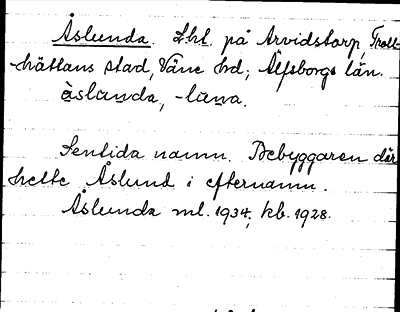 Åslunda. Lht på Arvidstorp, Troll-
hättans stad, Väne hd; Älfsborgs län.
àslunda, -luna.
Sentida namn. Bebyggaren där
hette Åslund i efternamn.
Åslunda ml. 1934; kb. 1928.